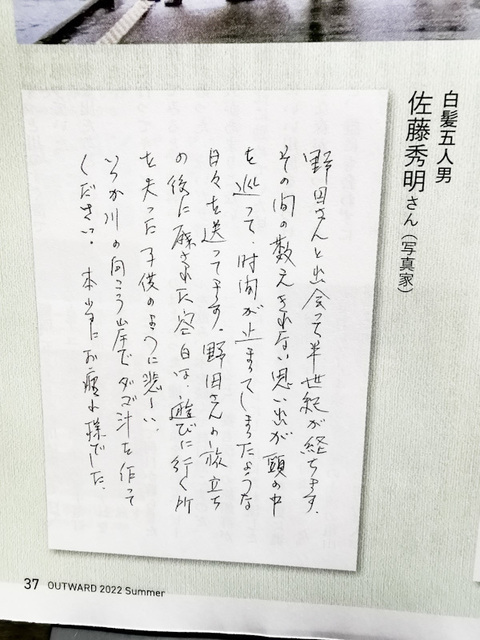 白髪五人男
佐藤秀明さん（写真家）
野田さんと出会って半世紀が経ちます。
その間の数えきれない思い出が頭の中
を巡って、時間が止まってしまったような
日々を送ってます。野田さんの旅立ち
の後に残された空白は、遊びに行く所
を失った子供のように悲しい。
いつか川の向こう岸でダゴ汁を作って
ください。本当にお疲れ様でした。
37 OUTWARD 2022 Summer